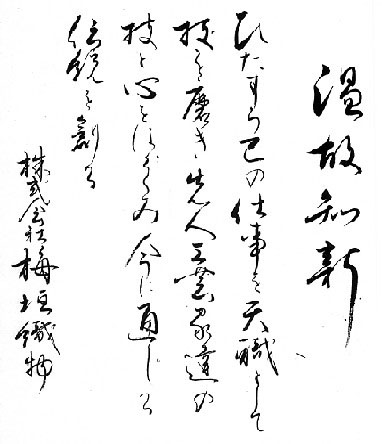 温故知新
ひたすら己の仕事を天職として
技を磨き先人工業家達の
技と心とに学び今に通じる
伝統を創る
株式会社梅垣織物